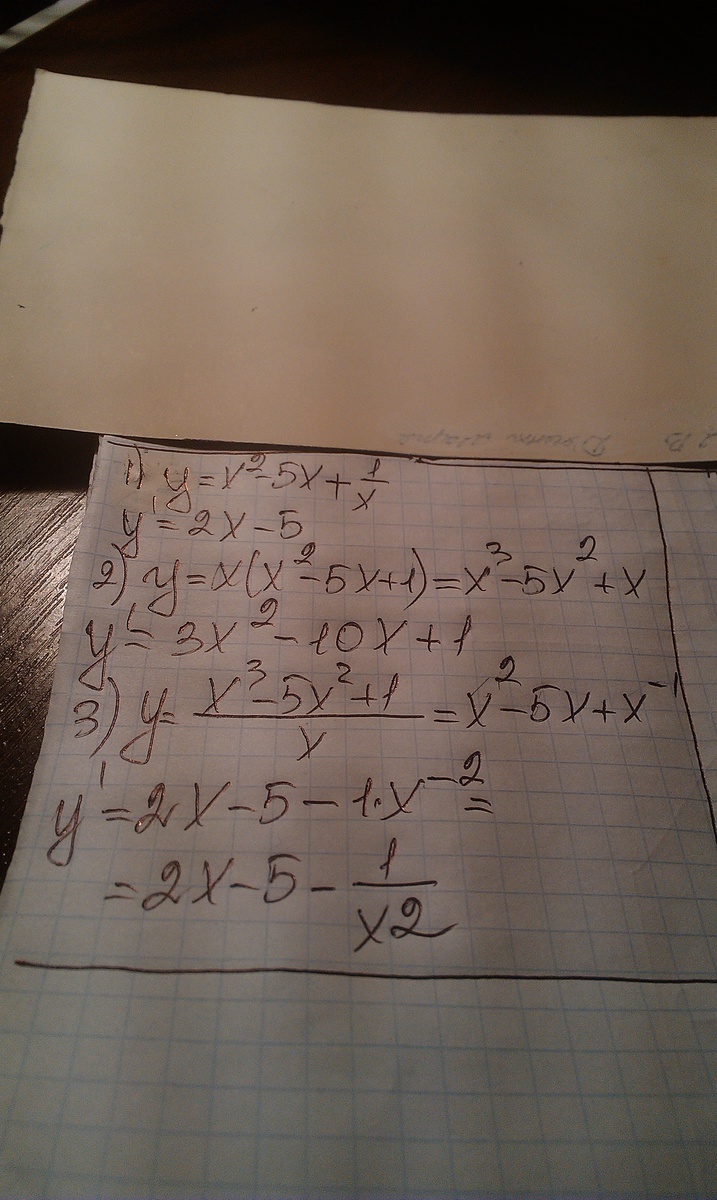 1) y=x²-5x+1/x
y'=2x-5
2) y=x(x²-5x+1)=x³-5x²+x
y'=3x²-10x+1
3) y=(x³-5x²+1)/x=x²-5x+x⁻¹
y'=2x-5-1·x⁻²=
=2x-5-1/x2